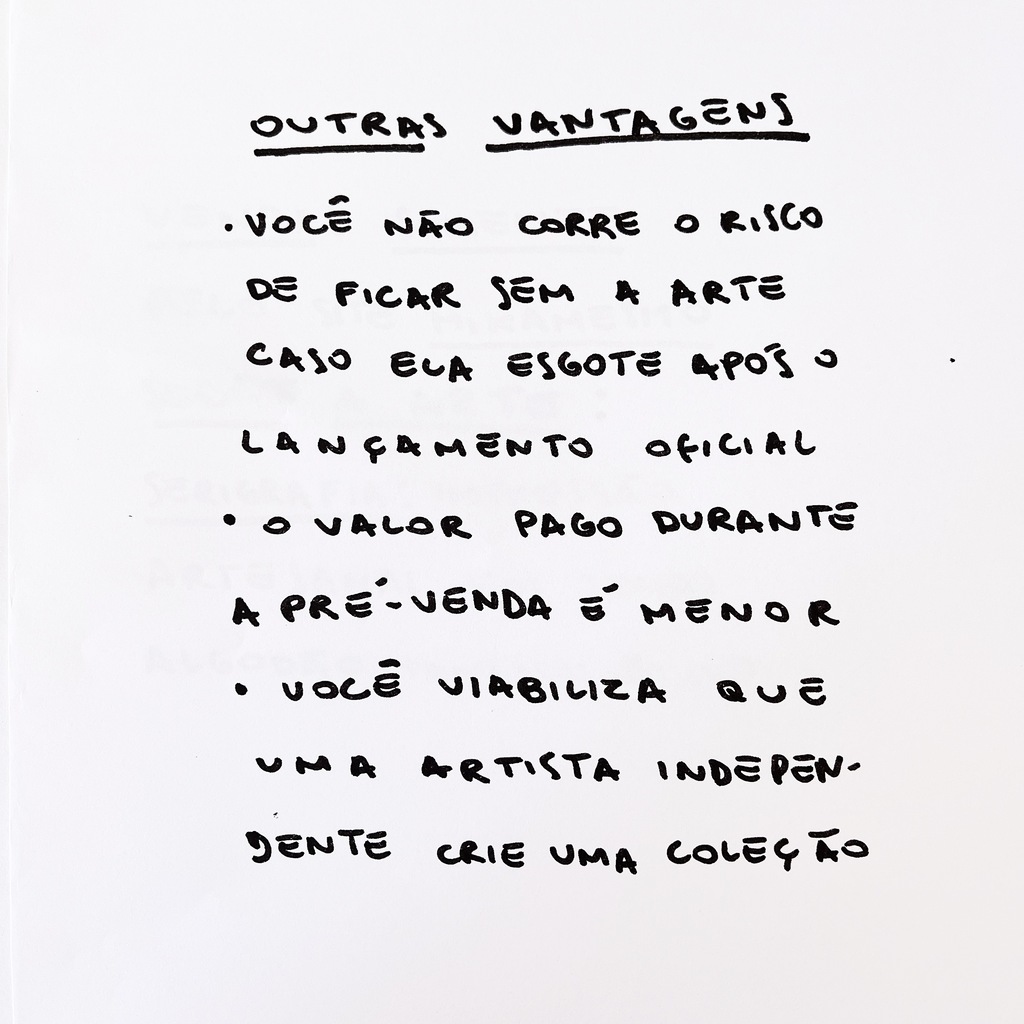 OUTRAS VANTAGENS
• VOCÊ NÃO CORRE O RISCO
DE FICAR SEM A ARTE
CASO ELA ESGOTE APÓS O
LANÇAMENTO OFICIAL
• O VALOR PAGO DURANTE
A PRÉ-VENDA É MENOR
• VOCÊ VIABILIZA QUE
UMA ARTISTA INDEPEN-
DENTE CRIE UMA COLEÇÃO